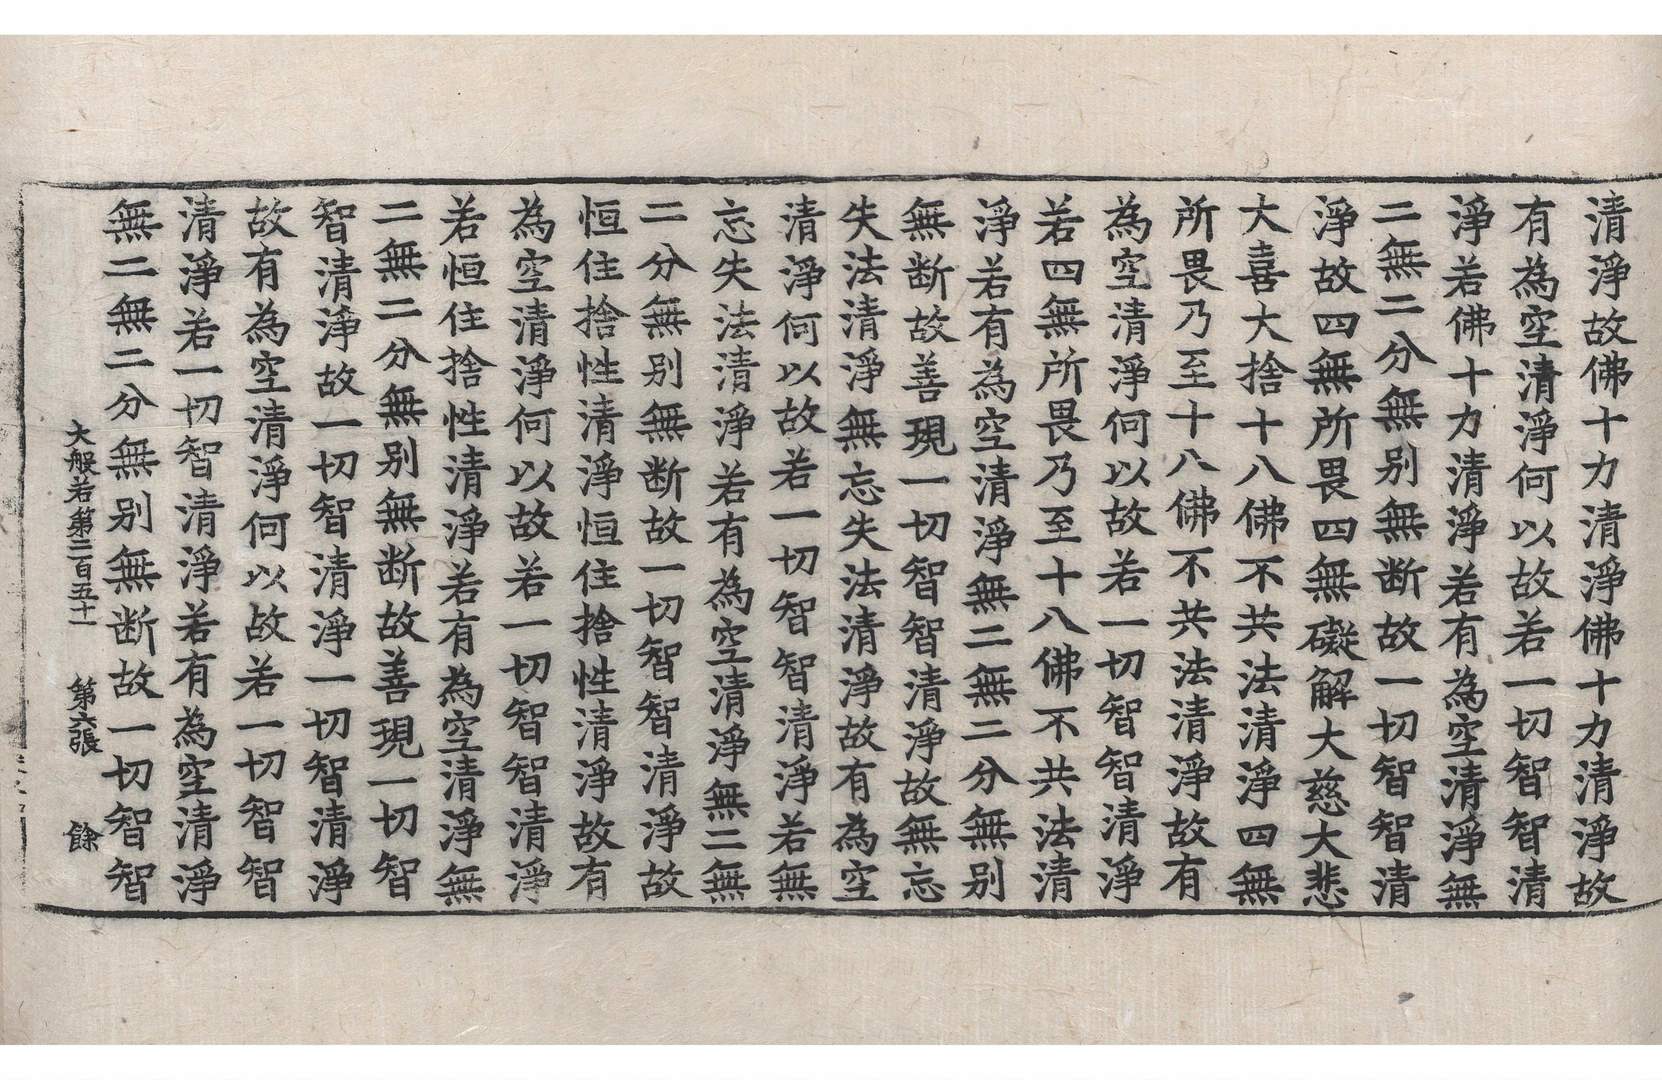 清淨故佛十力清淨佛十力清淨故
有為空清淨何以故若一切智智清
淨若佛十力清淨若有為空清淨無
二無二分無别無断故一切智智清
淨故四無所畏四無礙解大慈大悲
大喜大捨十八佛不共法清淨四無
所畏乃至十八佛不共法清淨故有
為空清淨何以故若一切智智清淨
若四無所畏乃至十八佛不共法清
淨若有為空清淨無二無二分無别
無断故善現一切智智清淨故無忘
失法清淨無忘失法清淨故有為空
清淨何以故若一切智智清淨若無
忘失法清淨若有為空清淨無二無
二分無别無断故一切智智清淨故
恒住捨性清淨恒住捨性清淨故有
為空清淨何以故若一切智智清淨
若恒住捨性清淨若有為空清淨無
二無二分無别無断故善現一切智
智清淨故一切智清淨一切智清淨
故有為空清淨何以故若一切智智
清淨若一切智清淨若有為空清淨
無二無二分無别無断故一切智智
大般若第二百五十一 第六張 餘